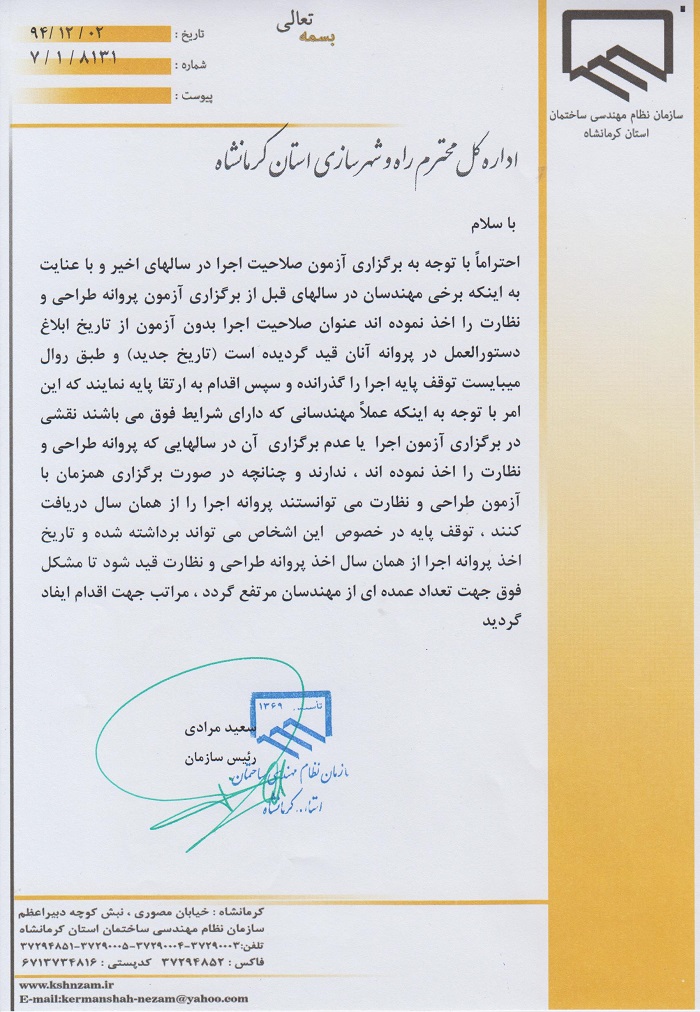 بسمه تعالی
تاریخ : ۹۴/۱۲/۰۲
شماره : ۷/۱/۸۱۳۱
پیوست :
سازمان نظام مهندسی ساختمان
استان کرمانشاه
اداره کل محترم راه و شهرسازی استان کرمانشاه
با سلام
احتراماً با توجه به برگزاری آزمون صلاحیت اجرا در سالهای اخیر و با عنایت
به اینکه برخی مهندسان در سالهای قبل از برگزاری آزمون پروانه طراحی و
نظارت را اخذ نموده اند عنوان صلاحیت اجرا بدون آزمون از تاریخ ابلاغ
دستورالعمل در پروانه آنان قید گردیده است (تاریخ جدید) و طبق روال
میبایست توقف پایه اجرا را گذرانده و سپس اقدام به ارتقا پایه نمایند که این
امر با توجه به اینکه عملاً مهندسانی که دارای شرایط فوق می باشند نقشی
در برگزاری آزمون اجرا یا عدم برگزاری آن در سالهایی که پروانه طراحی و
نظارت را اخذ نموده اند ، ندارند و چنانچه در صورت برگزاری همزمان با
آزمون طراحی و نظارت می توانستند پروانه اجرا را از همان سال دریافت
کنند ، توقف پایه در خصوص این اشخاص می تواند برداشته شده و تاریخ
اخذ پروانه اجرا از همان سال اخذ پروانه طراحی و نظارت قید شود تا مشکل
فوق جهت تعداد عمده ای از مهندسان مرتفع گردد ، مراتب جهت اقدام ایفاد
گردید
تأسیس ۱۳۶۹
سعید مرادی
رئیس سازمان
سازمان نظام مهندسی ساختمان
استان کرمانشاه
کرمانشاه : خیابان مصوری ، نبش کوچه دبیراعظم
سازمان نظام مهندسی ساختمان استان کرمانشاه
تلفن:۳۷۲۹۰۰۰۳-۳۷۲۹۰۰۰۴-۳۷۲۹۰۰۰۵-۳۷۲۹۴۸۵۱
فاکس : ۳۷۲۹۴۸۵۲ کدپستی : ۶۷۱۳۷۳۴۸۱۶
www.kshnzam.ir
E-mail:kermanshah-nezam@yahoo.com